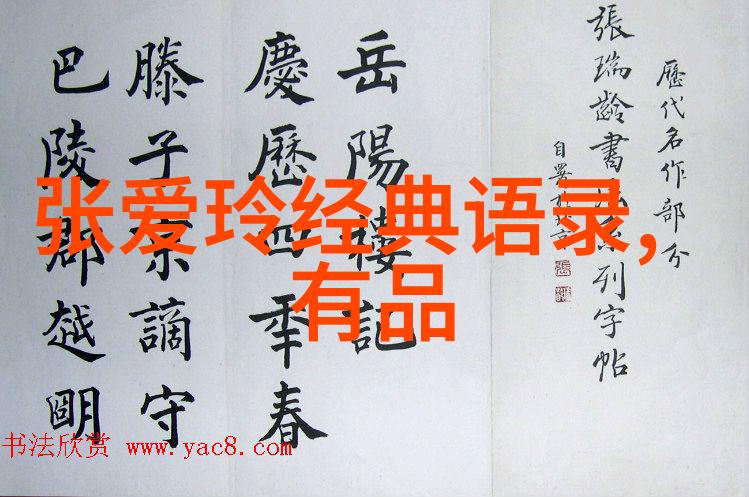 歷代名作部分
張瑞齡書法系列字帖
自署於北京
岳陽樓記
慶歷四年春
滕子京謫守
巴陵郡越明
张爱玲经典语录,
有品
书法欣赏 www.yac8.com